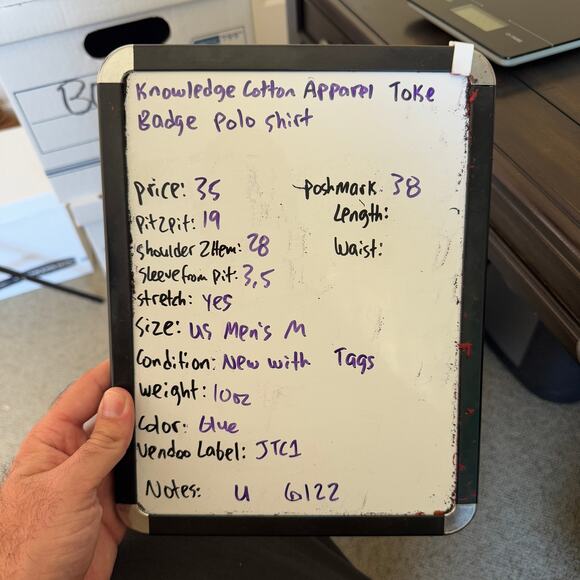 Knowledge Cotton Apparel Toke
Badge Polo Shirt
price: 35
Poshmark: 38
pit2pit: 19
Length:
shoulder 2Hem: 28
Waist:
sleeve from pit: 3,5
stretch: yes
size: US Men's M
Condition: New with Tags
weight: 10oz
Color: blue
Vendoo Label: JTC1
Notes: U 6122